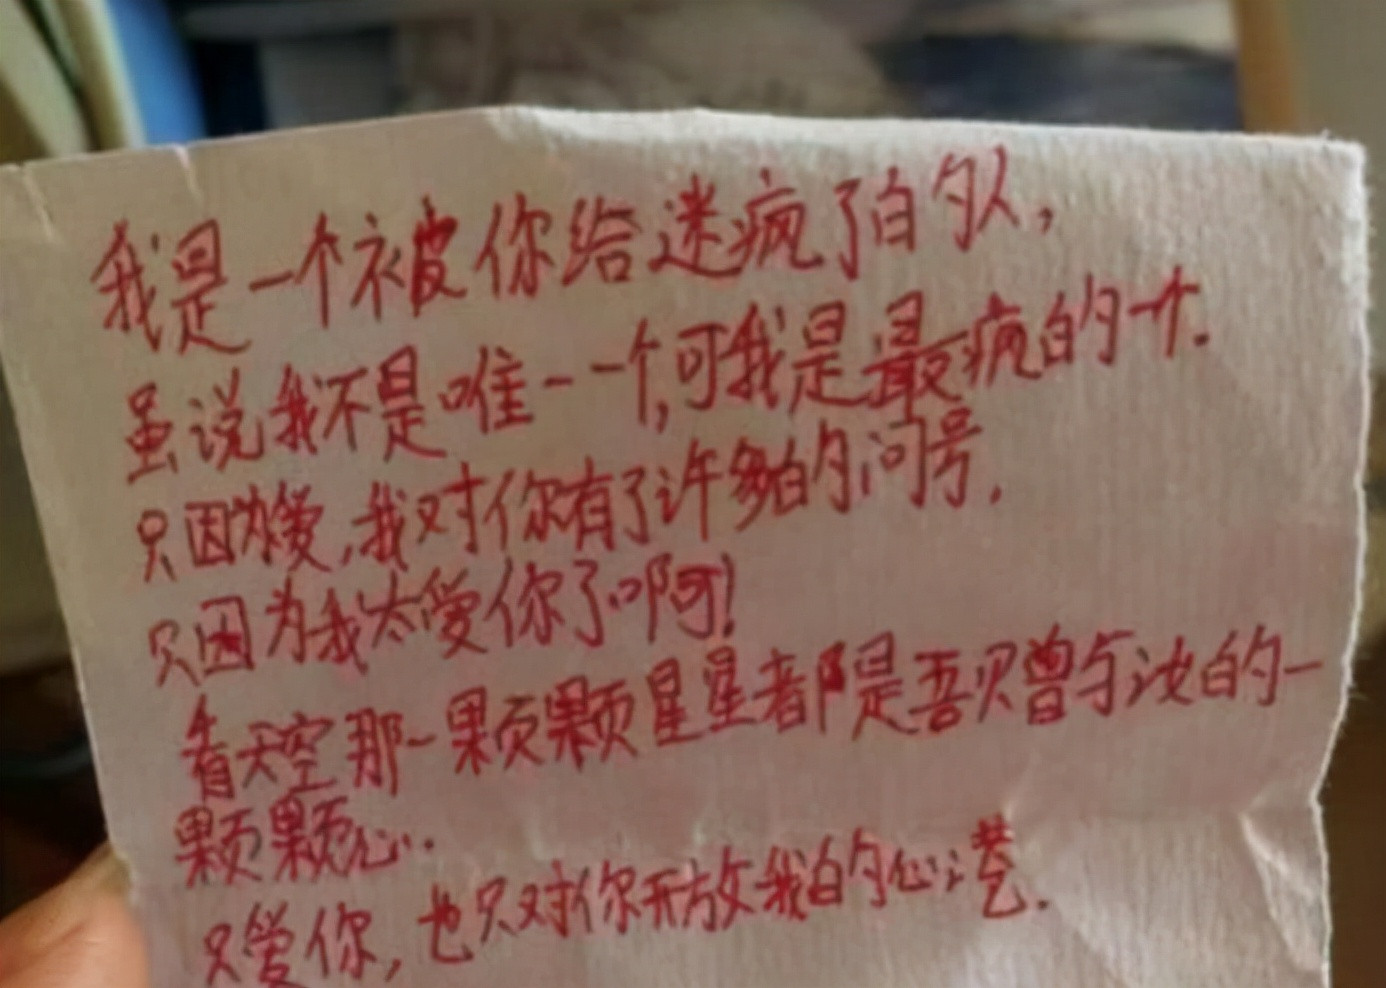 我是一个被你给迷疯了的人,
虽说我不是唯一一个,可我是最疯的一个.
只因为爱,我对你有了许多的问号,
只因为我太爱你了啊!
看天空那一颗颗星星都是吾只曾与汝的一
颗颗心.
只爱你,也只对你开放我的心港.